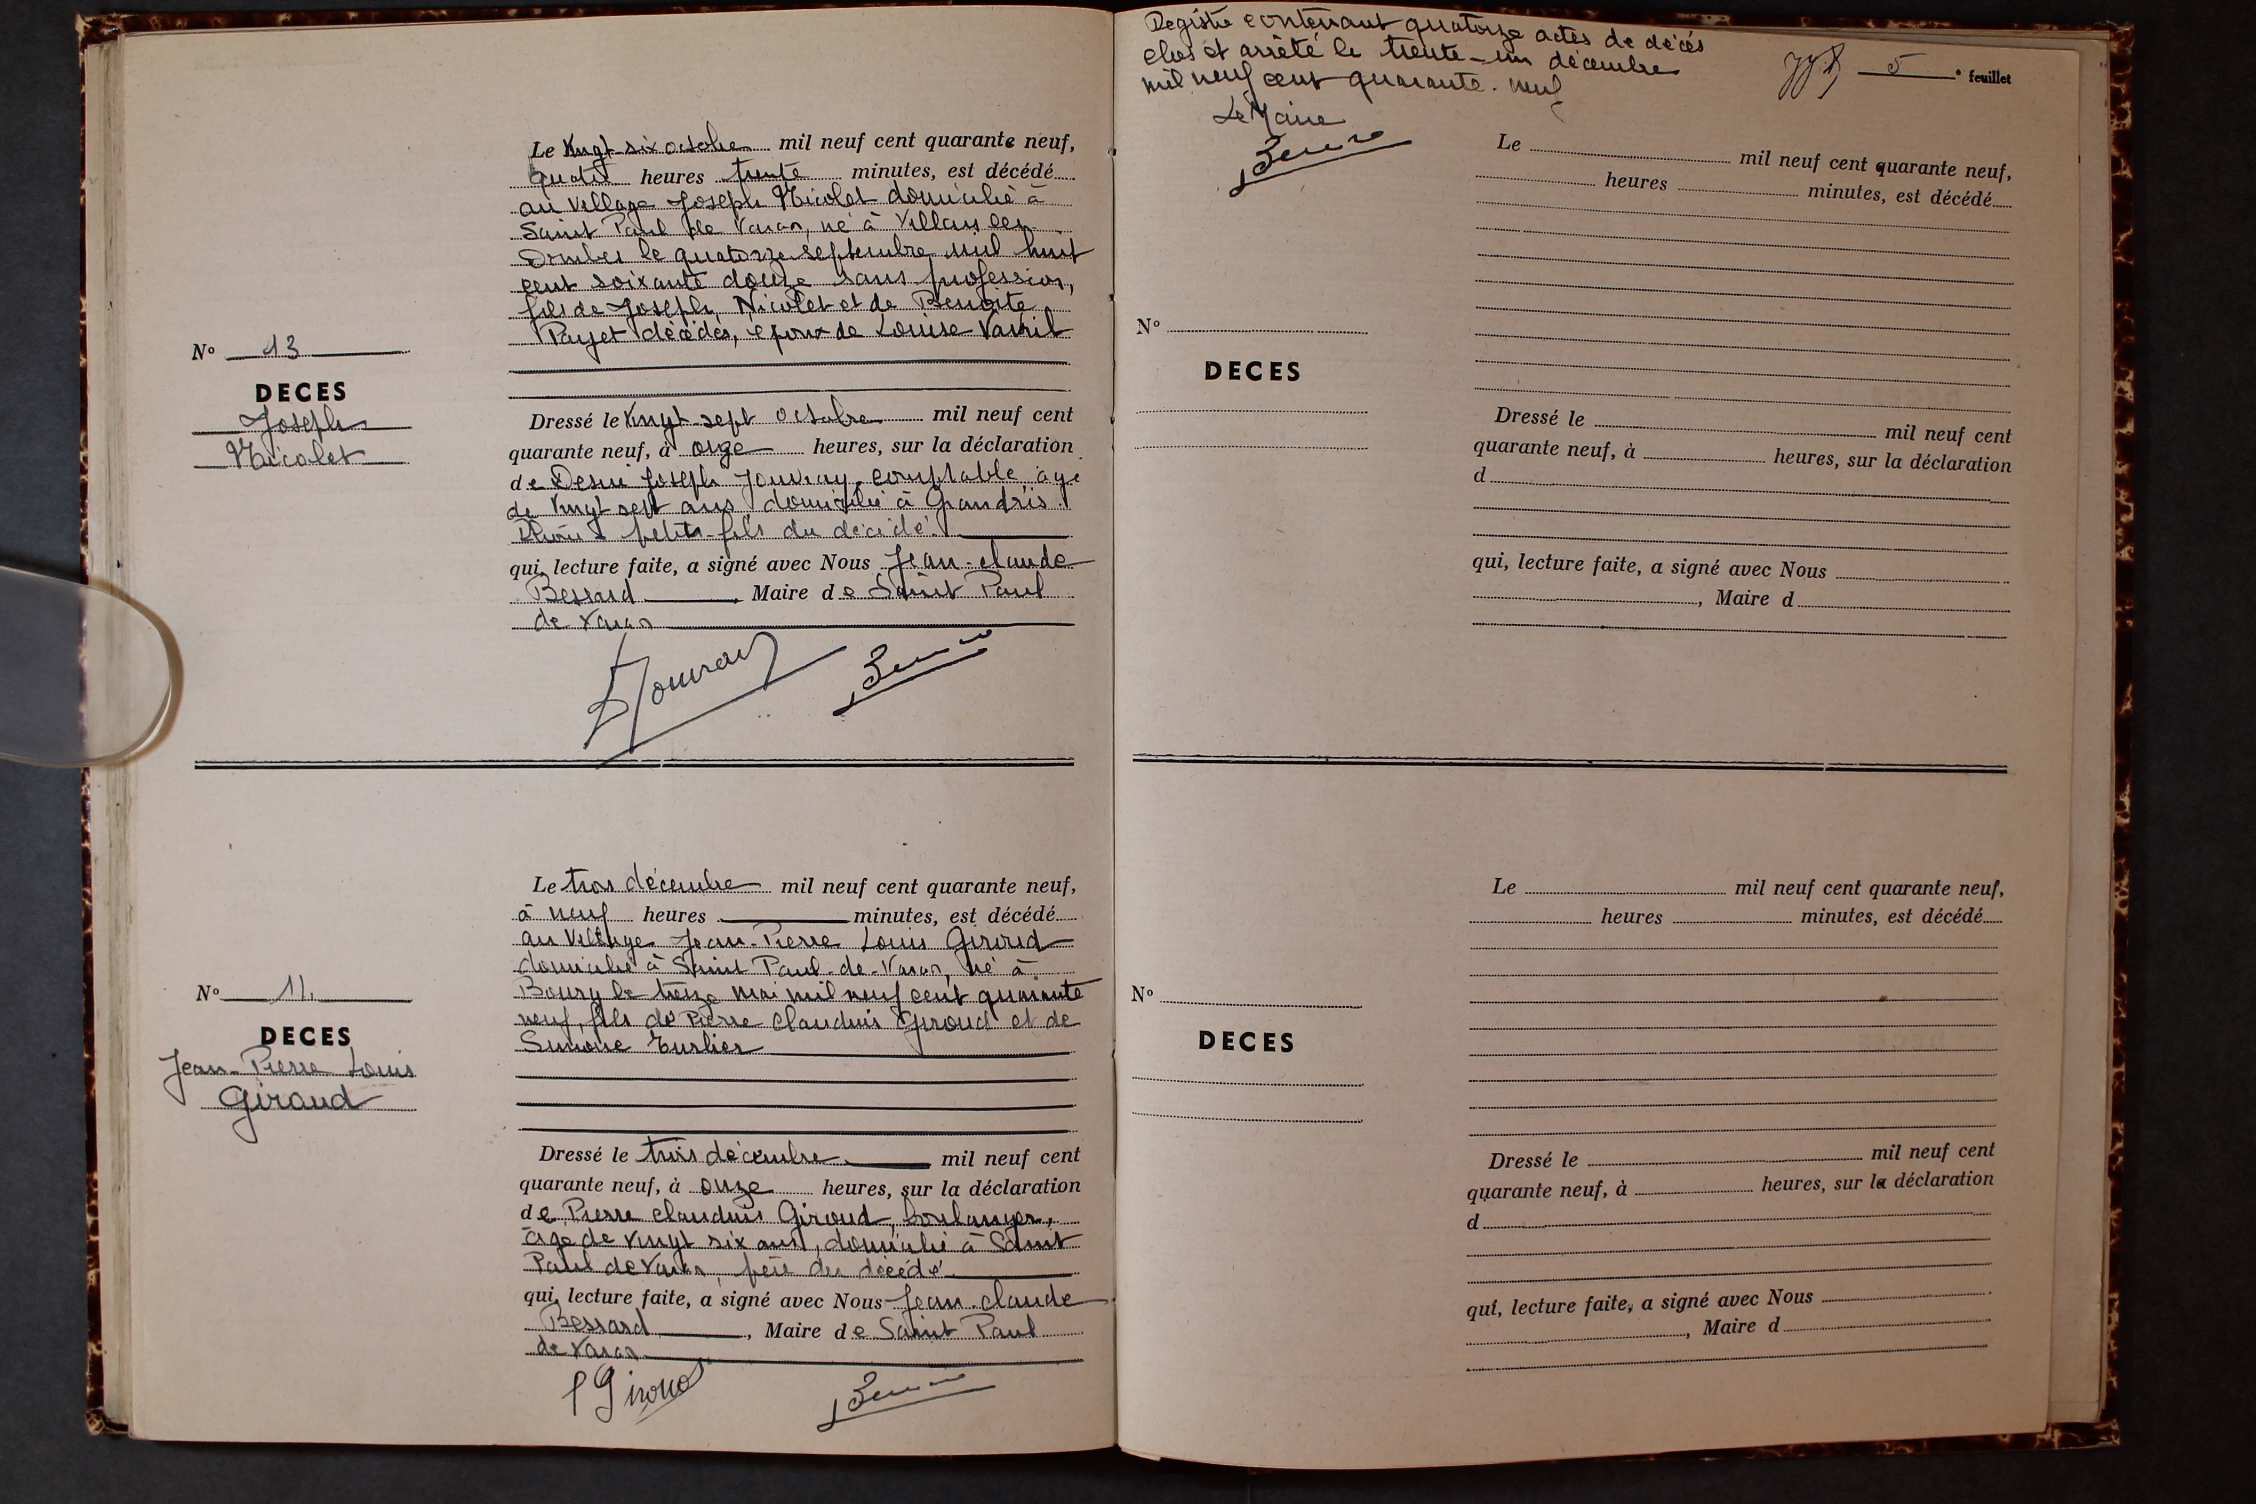 Le vingt-six octobre mil neuf cent quarante neuf,
quatre heures trente minutes, est décédé
au village Joseph Nicolet domicilié à
Saint Paul de Varax, né à Villars les
Dombes le quatorze septembre mil huit
cent soixante douze sans profession,
fils de Joseph Nicolet et de Benoite
Payet décédés, époux de Louise
N° 13
DECES
Joseph
Nicolet
Dressé le vingt-sept octobre mil neuf cent
quarante neuf, à onze heures, sur la déclaration
de Joseph Jouvray, comptable, âgé
de vingt sept ans, domicilié à Grandris
Rhône petits-fils du décédé.
qui, lecture faite, a signé avec Nous Jean-Claude
Bessard, Maire de Saint Paul
de Varax
Jouvray
Le trois décembre mil neuf cent quarante neuf,
à neuf heures minutes, est décédé
au village Jean-Pierre Louis Giroud
domicilié à Saint Paul-de-Varax, né à
Bourg le treize mai mil neuf cent quarante
neuf, fils de Pierre Claudius Giroud et de
Simone
N°
DECES
Jean-Pierre Louis
Giroud
Dressé le trois décembre mil neuf cent
quarante neuf, à onze heures, sur la déclaration
de Pierre Claudius Giroud, boulanger,
âgé de vingt six ans, domicilié à Saint
Paul de Varax, père du décédé
qui, lecture faite, a signé avec Nous Jean-Claude
Bessard, Maire de Saint Paul
de Varax
P Giroud
Registre contenant quatorze actes de décès
clos et arrêté le trente-un décembre
mil neuf cent quarante-neuf
Le Maire
5 e feuillet
Le mil neuf cent quarante neuf,
heures minutes, est décédé
N°
DECES
Dressé le mil neuf cent
quarante neuf, à heures, sur la déclaration
d
qui, lecture faite, a signé avec Nous
, Maire d
Le mil neuf cent quarante neuf,
heures minutes, est décédé
N°
DECES
Dressé le mil neuf cent
quarante neuf, à heures, sur la déclaration
d
qui, lecture faite, a signé avec Nous
, Maire d